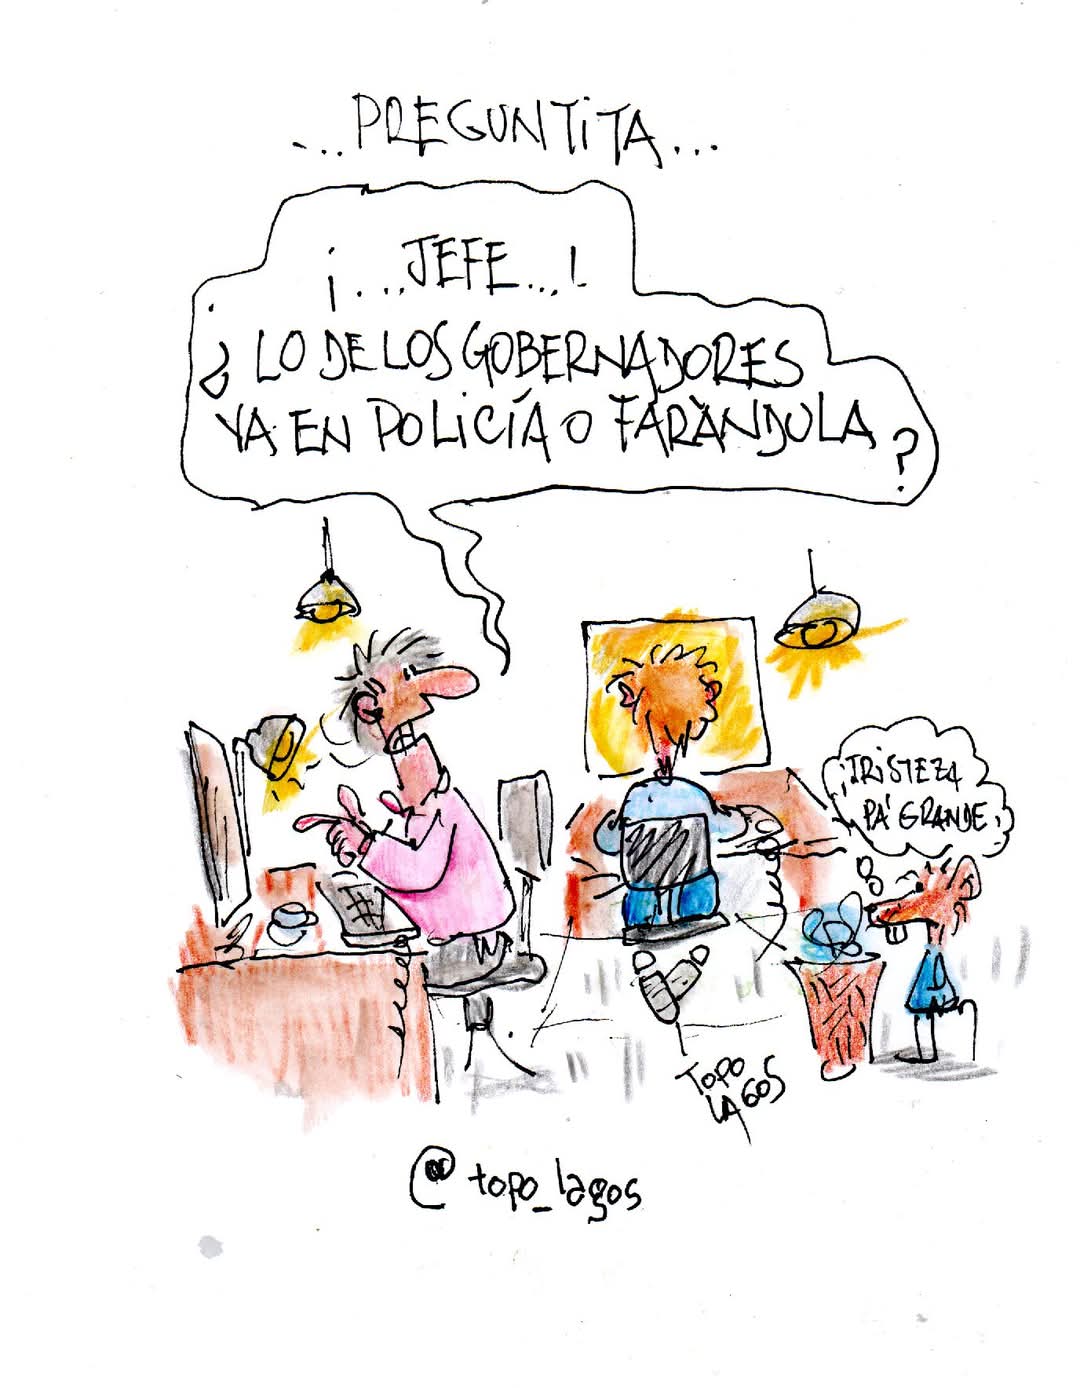 ...PREGUNTiTA...
¡...JEFE...!
¿LO DE LOS GOBERNADORES
VA EN POLiCÍA O FARÀNDULA?
¡TRiSTEZA
PA' GRANDE!
TOPO
LAGOS
@topo_lagos